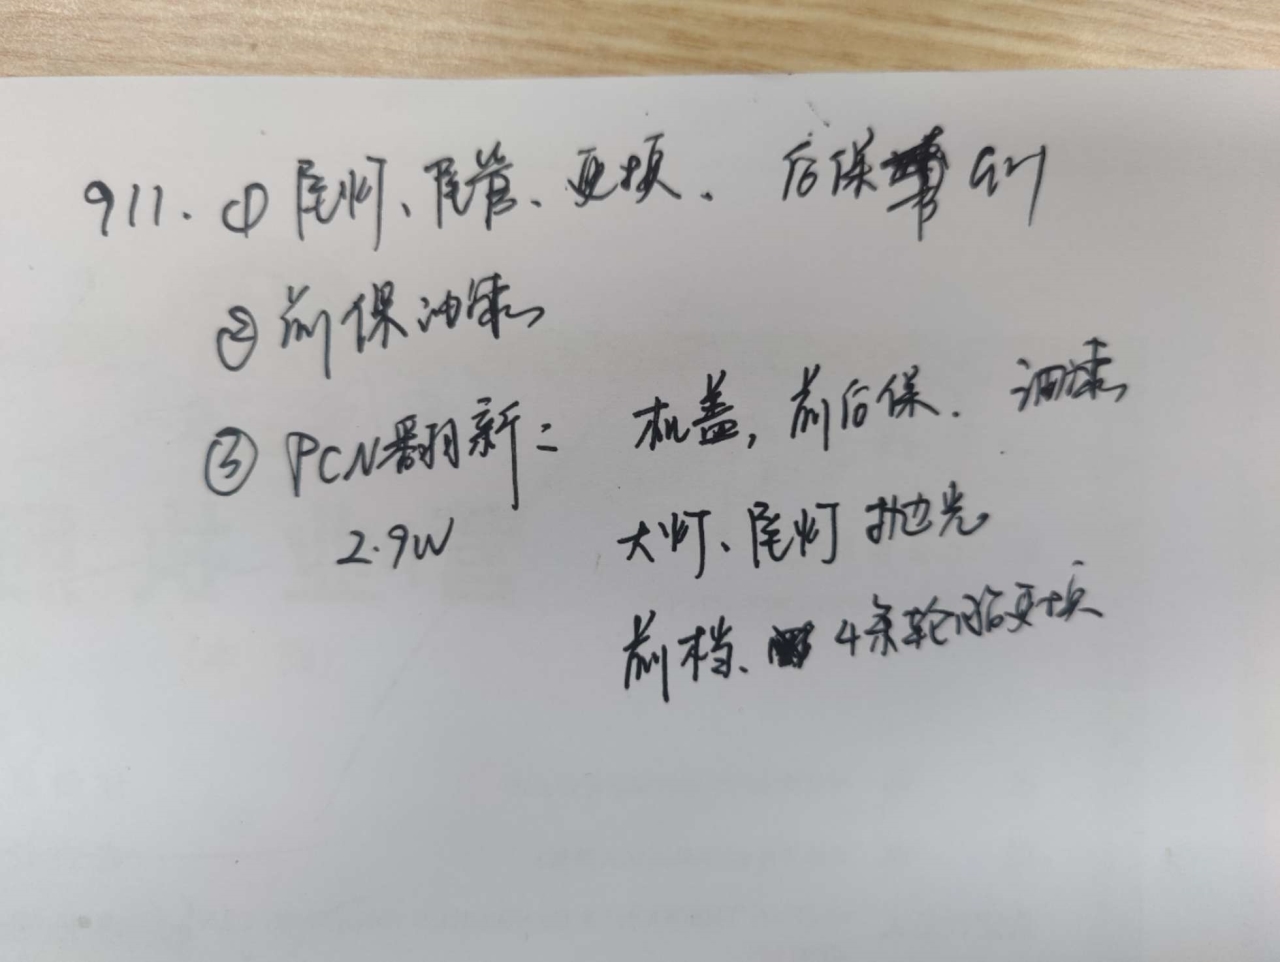 911. ① 尾灯、尾管、更换、后保
② 前保油漆
③ PCN翻新: 机盖, 前后保. 油漆
2.9W 大灯、尾灯抛光
前档、4条轮胎更换